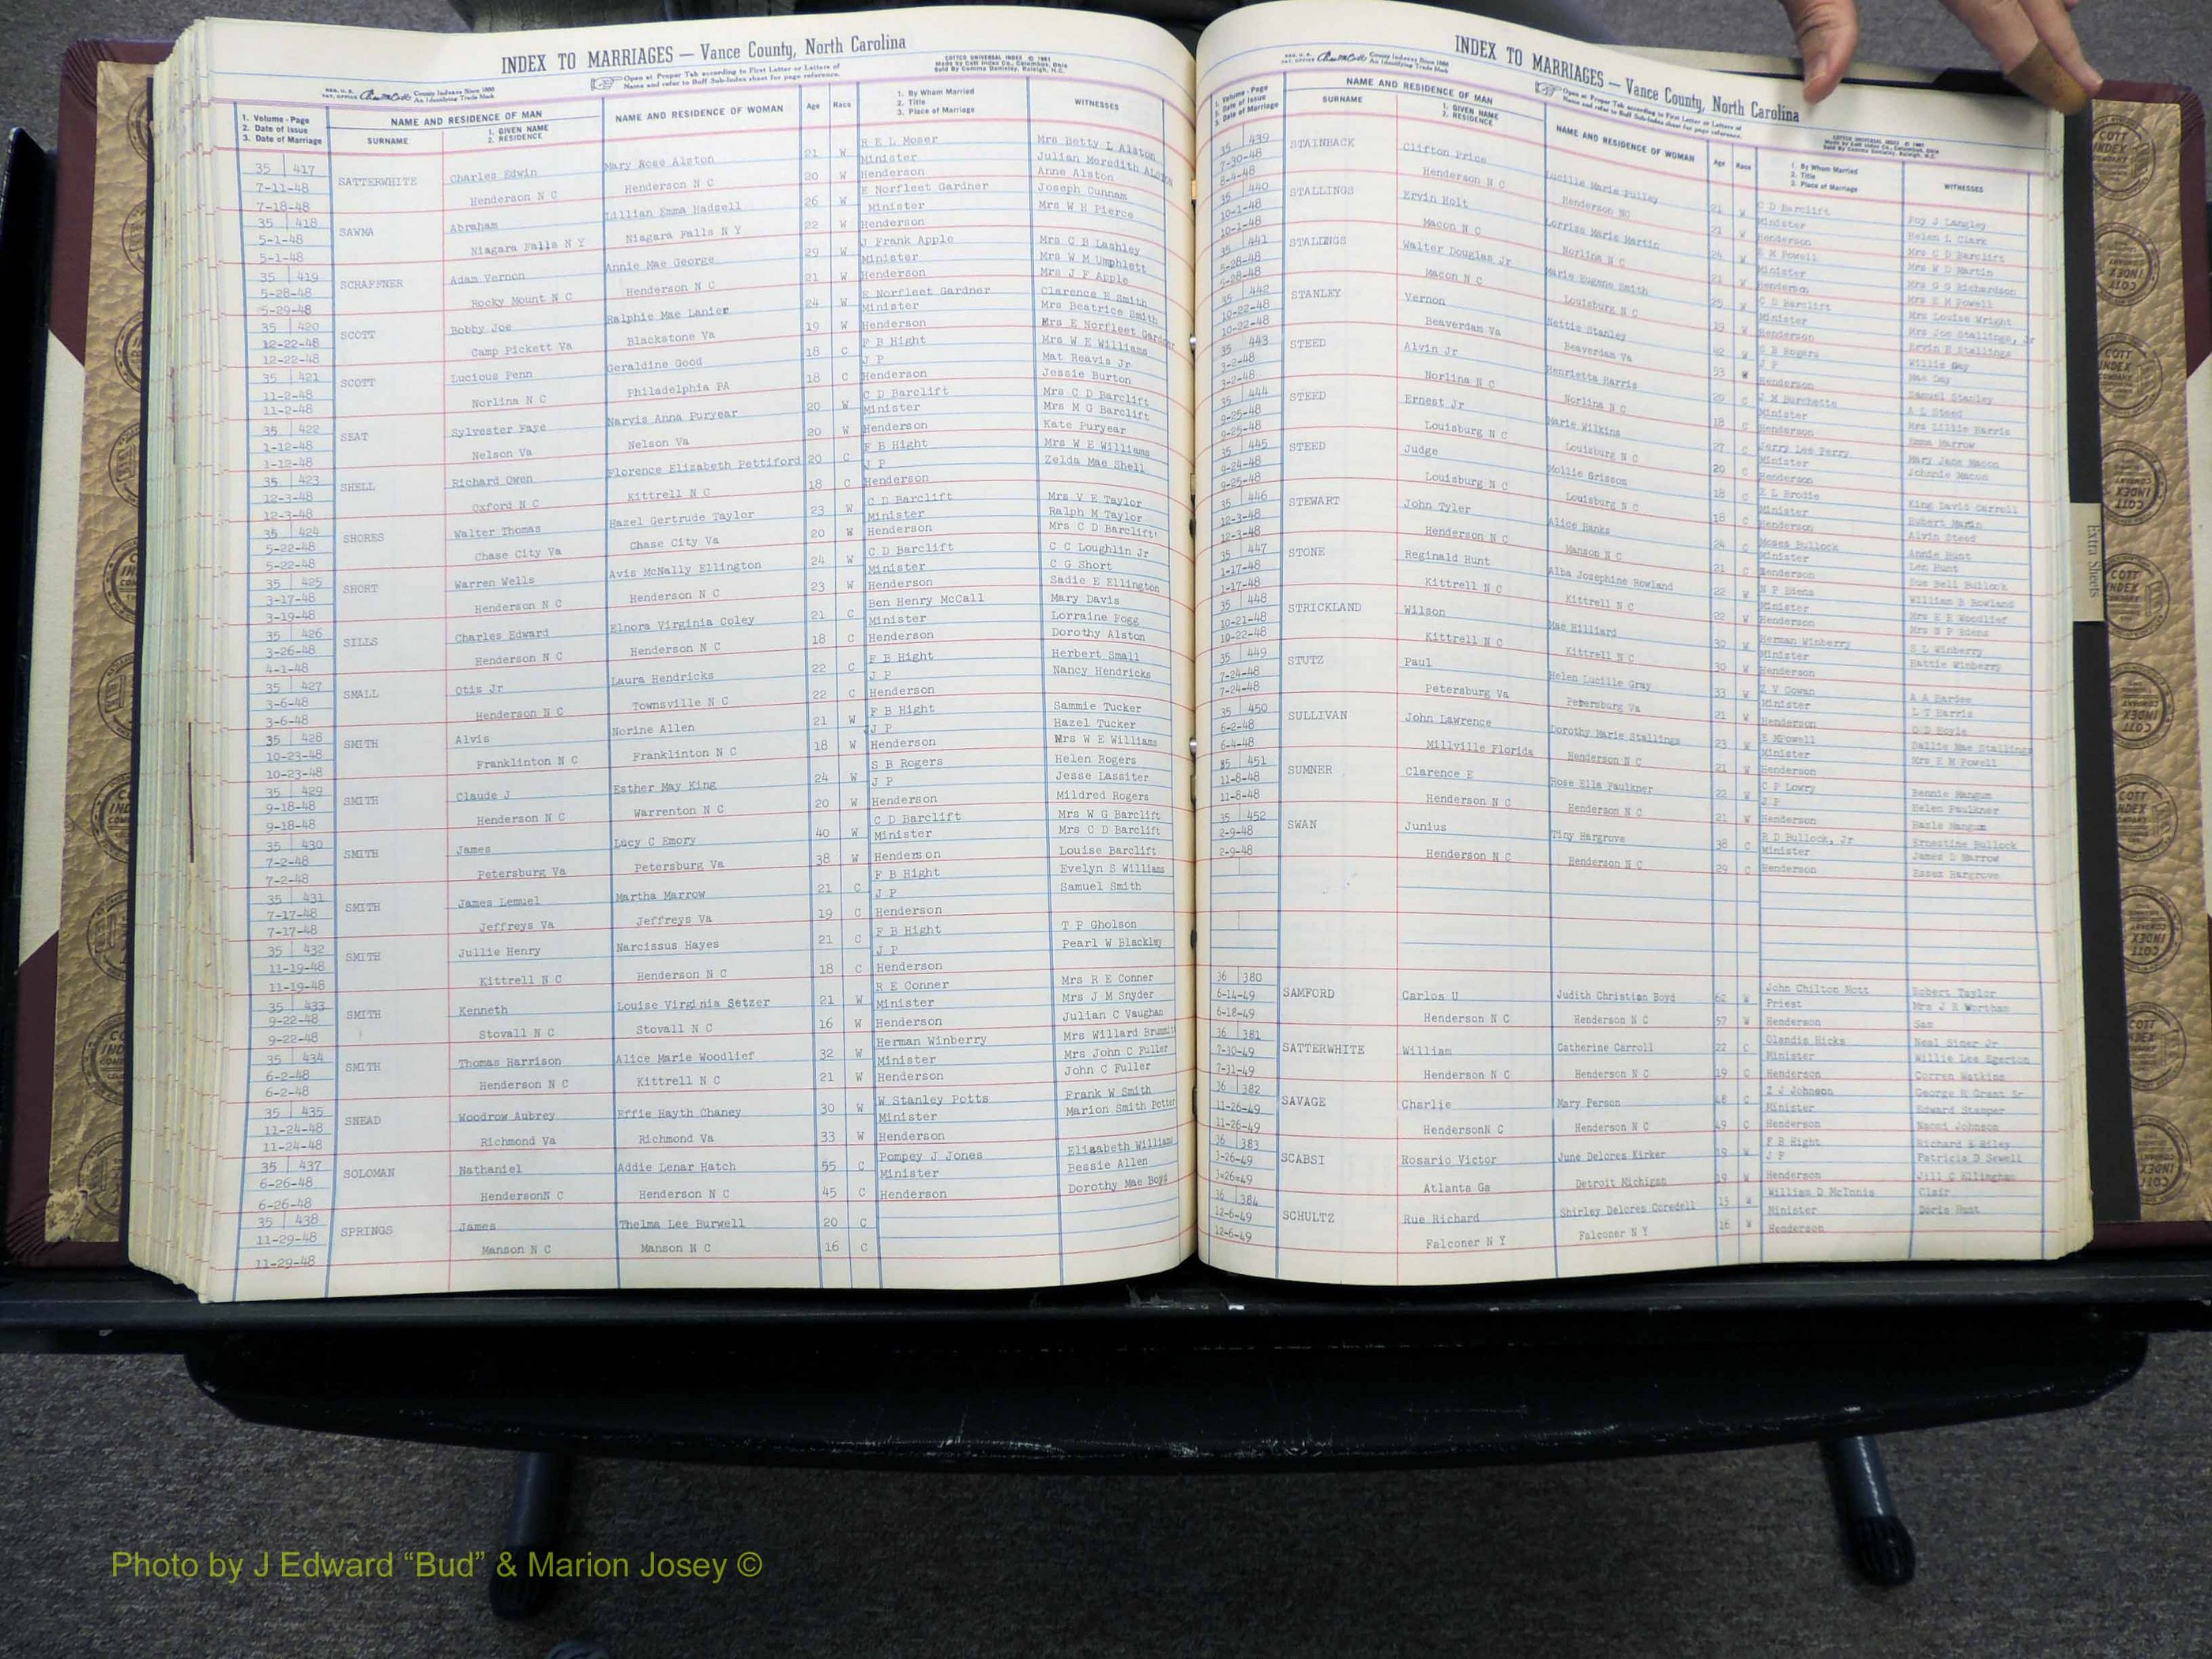 INDEX TO MARRIAGES — Vance County, North Carolina
Open at Proper Tab according to First Letter or Letters of
Name and refer to Buff Sub-Index sheet for page reference.
1. Volume - Page
2. Date of Issue
3. Date of Marriage
NAME AND RESIDENCE OF MAN
SURNAME
1. GIVEN NAME
2. RESIDENCE
NAME AND RESIDENCE OF WOMAN
Age Race
1. By Whom Married
2. Title
3. Place of Marriage
WITNESSES
35 417 SATTERWHITE Charles Edwin Mary Rose Alston 21 W R E L Moser Mrs Betty L Alston
7-11-48 Henderson N C Henderson N C 20 W Minister Julian Meredith Alston
7-18-48 Henderson Anne Alston
35 418 SAWMA Abraham Lillian Emma Hadsell 26 W E Norfleet Gardner Joseph Cunnam
5-1-48 Niagara Falls N Y Niagara Falls N Y 22 W Minister Mrs W H Pierce
5-1-48 Henderson
35 419 SCHAFFNER Adam Vernon Annie Mae George 29 W J Frank Apple Mrs C B Lashley
5-28-48 Rocky Mount N C Henderson N C 21 W Minister Mrs W M Umphlett
5-29-48 Henderson Mrs J F Apple
35 420 SCOTT Bobby Joe Ralphie Mae Lanier 24 W E Norfleet Gardner Clarence E Smith
12-22-48 Camp Pickett Va Blackstone Va 19 W Minister Mrs Beatrice Smith
12-22-48 Henderson Mrs E Norfleet Gardner
35 421 SCOTT Lucious Penn Geraldine Good 18 C F B Hight Mrs W E Williams
11-2-48 Norlina N C Philadelphia PA 18 C J P Mat Reavis Jr
11-2-48 Henderson Jessie Burton
35 422 SEAT Sylvester Faye Narvis Anna Puryear 20 W C D Barclift Mrs C D Barclift
1-12-48 Nelson Va Nelson Va 20 W Minister Mrs M G Barclift
1-12-48 Henderson Kate Puryear
35 423 SHELL Richard Owen Florence Elizabeth Pettiford 20 C F B Hight Mrs W E Williams
12-3-48 Oxford N C Kittrell N C 18 C J P Zelda Mae Shell
12-3-48 Henderson
35 424 SHORES Walter Thomas Hazel Gertrude Taylor 23 W C D Barclift Mrs V E Taylor
5-22-48 Chase City Va Chase City Va 20 W Minister Ralph M Taylor
5-22-48 Henderson Mrs C D Barclift
35 425 SHORT Warren Wells Avis McNally Ellington 24 W C D Barclift C C Loughlin Jr
3-17-48 Henderson N C Henderson N C 23 W Minister C G Short
3-19-48 Henderson Sadie E Ellington
35 426 SILLS Charles Edward Elnora Virginia Coley 21 C Ben Henry McCall Mary Davis
3-26-48 Henderson N C Henderson N C 18 C Minister Lorraine Fogg
4-1-48 Henderson Dorothy Alston
35 427 SMALL Otis Jr Laura Hendricks 22 C F B Hight Herbert Small
3-6-48 Henderson N C Townsville N C 22 C J P Nancy Hendricks
3-6-48 Henderson
35 428 SMITH Alvis Norine Allen 21 W F B Hight Sammie Tucker
10-23-48 Franklinton N C Franklinton N C 18 W J P Hazel Tucker
10-23-48 Henderson Mrs W E Williams
35 429 SMITH Claude J Esther May King 24 W S B Rogers Helen Rogers
9-18-48 Henderson N C Warrenton N C 20 W J P Jesse Lassiter
9-18-48 Henderson Mildred Rogers
35 430 SMITH James Lucy C Emory 40 W C D Barclift Mrs W G Barclift
7-2-48 Petersburg Va Petersburg Va 38 W Minister Mrs C D Barclift
7-2-48 Henderson Louise Barclift
35 431 SMITH James Lemuel Martha Marrow 21 C F B Hight Evelyn S Williams
7-17-48 Jeffreys Va Jeffreys Va 19 C J P Samuel Smith
7-17-48 Henderson
35 432 SMITH Jullie Henry Narcissus Hayes 21 C F B Hight T P Gholson
11-19-48 Kittrell N C Henderson N C 18 C J P Pearl W Blackley
11-19-48 Henderson
35 433 SMITH Kenneth Louise Virginia Setzer 21 W R E Conner Mrs R E Conner
9-22-48 Stovall N C Stovall N C 16 W Minister Mrs J M Snyder
9-22-48 Henderson Julian C Vaughan
35 434 SMITH Thomas Harrison Alice Marie Woodlief 32 W Herman Winberry Mrs Willard Brummit
6-2-48 Henderson N C Kittrell N C 21 W Minister Mrs John C Fuller
6-2-48 Henderson John C Fuller
35 435 SNEAD Woodrow Aubrey Effie Hayth Chaney 30 W W Stanley Potts Frank W Smith
11-24-48 Richmond Va Richmond Va 33 W Minister Marion Smith Potter
11-24-48 Henderson
35 437 SOLOMAN Nathaniel Addie Lenar Hatch 55 C Pompey J Jones Elizabeth Williams
6-26-48 HendersonN C Henderson N C 45 C Minister Bessie Allen
6-26-48 Henderson Dorothy Mae Boyd
35 438 SPRINGS James Thelma Lee Burwell 20 C
11-29-48 Manson N C Manson N C 16 C
11-29-48
INDEX TO MARRIAGES — Vance County, North Carolina
Open at Proper Tab according to First Letter or Letters of
Name and refer to Buff Sub-Index sheet for page reference.
1. Volume - Page
2. Date of Issue
3. Date of Marriage
NAME AND RESIDENCE OF MAN
SURNAME
1. GIVEN NAME
2. RESIDENCE
NAME AND RESIDENCE OF WOMAN
Age Race
1. By Whom Married
2. Title
3. Place of Marriage
WITNESSES
35 439 STAINBACK Clifton Price Lucille Marie Pulley 21 W C D Barclift Foy J Langley
7-30-48 Henderson N C Henderson NC 21 W Minister Helen L Clark
8-4-48 Henderson Mrs C D Barclift
35 440 STALLINGS Ervin Holt Lorriss Marie Martin 24 W E M Powell Mrs W D Martin
10-1-48 Macon N C Norlina N C 21 W Minister Mrs G G Richardson
10-1-48 Henderson Mrs E M Powell
35 441 STALLINGS Walter Douglas Jr Marie Eugene Smith 25 W C D Barclift Mrs Louise Wright
5-28-48 Macon N C Louisburg N C 19 W Minister Mrs Joe Stallings, Jr
5-28-48 Henderson Ervin B Stallings
35 442 STANLEY Vernon Nettie Stanley 42 W S B Rogers Willis Day
10-22-48 Beaverdam Va Beaverdam Va 53 W J P Mae Day
10-22-48 Henderson Samuel Stanley
35 443 STEED Alvin Jr Henrietta Harris 20 C J M Burchette A L Steed
3-2-48 Norlina N C Norlina N C 18 C Minister Mrs Lillie Harris
3-2-48 Henderson Emma Marrow
35 444 STEED Ernest Jr Marie Wilkins 27 C Jerry Lee Perry Mary Jane Macon
9-25-48 Louisburg N C Louisburg N C 20 C Minister Johnnie Macon
9-25-48 Henderson
35 445 STEED Judge Mollie Grissom 18 C Z L Brodie King David Carroll
9-24-48 Louisburg N C Louisburg N C 18 C Minister Hubert Martin
9-25-48 Henderson Alvin Steed
35 446 STEWART John Tyler Alice Hanks 24 C Moses Bullock Annie Hunt
12-3-48 Henderson N C Manson N C 21 C Minister Len Hunt
12-3-48 Henderson Sue Bell Bullock
35 447 STONE Reginald Hunt Alba Josephine Rowland 22 W N P Edens William B Rowland
1-17-48 Kittrell N C Kittrell N C 22 W Minister Mrs E E Woodlief
1-17-48 Henderson Mrs N P Edens
35 448 STRICKLAND Wilson Mae Hilliard 30 W Herman Winberry S L Winberry
10-21-48 Kittrell N C Kittrell N C 30 W Minister Hattie Winberry
10-22-48 Henderson
35 449 STUTZ Paul Helen Lucille Gray 33 W Z V Cowan A A Bardes
7-24-48 Petersburg Va Petersburg Va 21 W Minister L T Harris
7-24-48 Henderson
35 450 SULLIVAN John Lawrence Dorothy Marie Stallings 23 W E MPowell Sallie Mae Stallings
6-2-48 Millville Florida Henderson N C 21 W Minister Mrs E M Powell
6-4-48 Henderson
35 451 SUMNER Clarence E Rose Ella Faulkner 22 W C P Lowry Bennie Mangum
11-8-48 Henderson N C Henderson N C 21 W J P Helen Faulkner
11-8-48 Henderson Hazle Mangum
35 452 SWAN Junius Tiny Hargrove 38 C R D Bullock, Jr Ernestine Bullock
2-9-48 Henderson N C Henderson N C 29 C Minister James D Marrow
2-9-48 Henderson Essex Hargrove
36 380 SAMFORD Carlos U Judith Christian Boyd 62 W John Chilton Mott Robert Taylor
6-14-49 Henderson N C Henderson N C 57 W Priest Mrs J R Wortham
6-18-49 Henderson Sam
36 381 SATTERWHITE William Catherine Carroll 22 C Olandis Hicks Neal Simer Jr
7-30-49 Henderson N C Henderson N C 19 C Minister Willie Lee Egerton
7-31-49 Henderson Corren Watkins
36 382 SAVAGE Charlie Mary Person 48 C Z J Johnson George R Grant Sr
11-26-49 HendersonN C Henderson N C 49 C Minister Edward Stamper
11-26-49 Henderson Naomi Johnson
36 383 SCABSI Rosario Victor June Delores Kirker 19 W F B Hight Richard E Riley
3-26-49 Atlanta Ga Detroit Michigan 19 W J P Patricia D Sewell
3-26-49 Henderson Jill C Ellingham
36 384 SCHULTZ Rue Richard Shirley Delores Coredell 15 W William D McInnis Clair
12-6-49 Falconer N Y Falconer N Y 16 W Minister Doris Hunt
12-6-49 Henderson
Extra Sheets
COTT
INDEX
COMPANY
Photo by J Edward “Bud” & Marion Josey ©